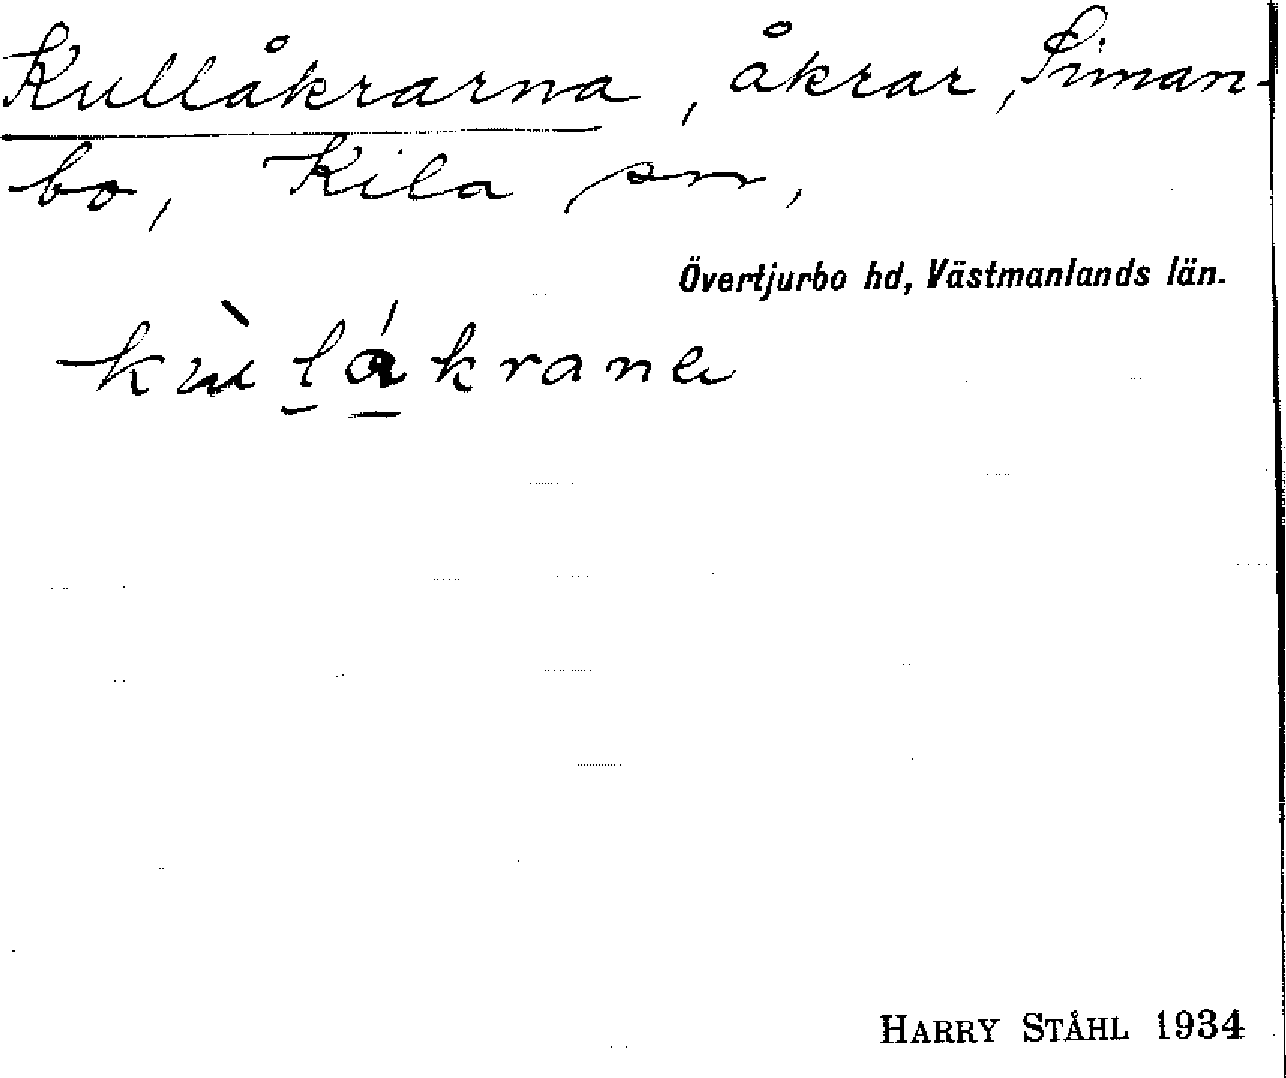 Kullåkrarna, åkrar, Siman-
bo, Kila sn,
Övertjurbo hd, Västmanlands län.
kùlákrana
HARRY STÅHL 1934